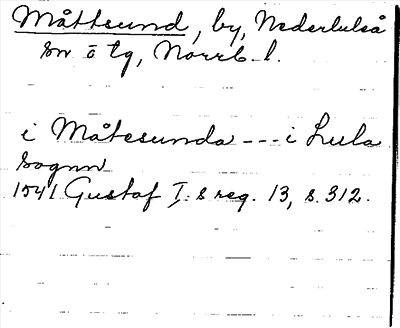 Måttsund, by, Nederluleå
sn o tg, Norrb. l.
i Måtesunda --- i Lula
sognn
1541 Gustaf I:s reg. 13, s. 312.